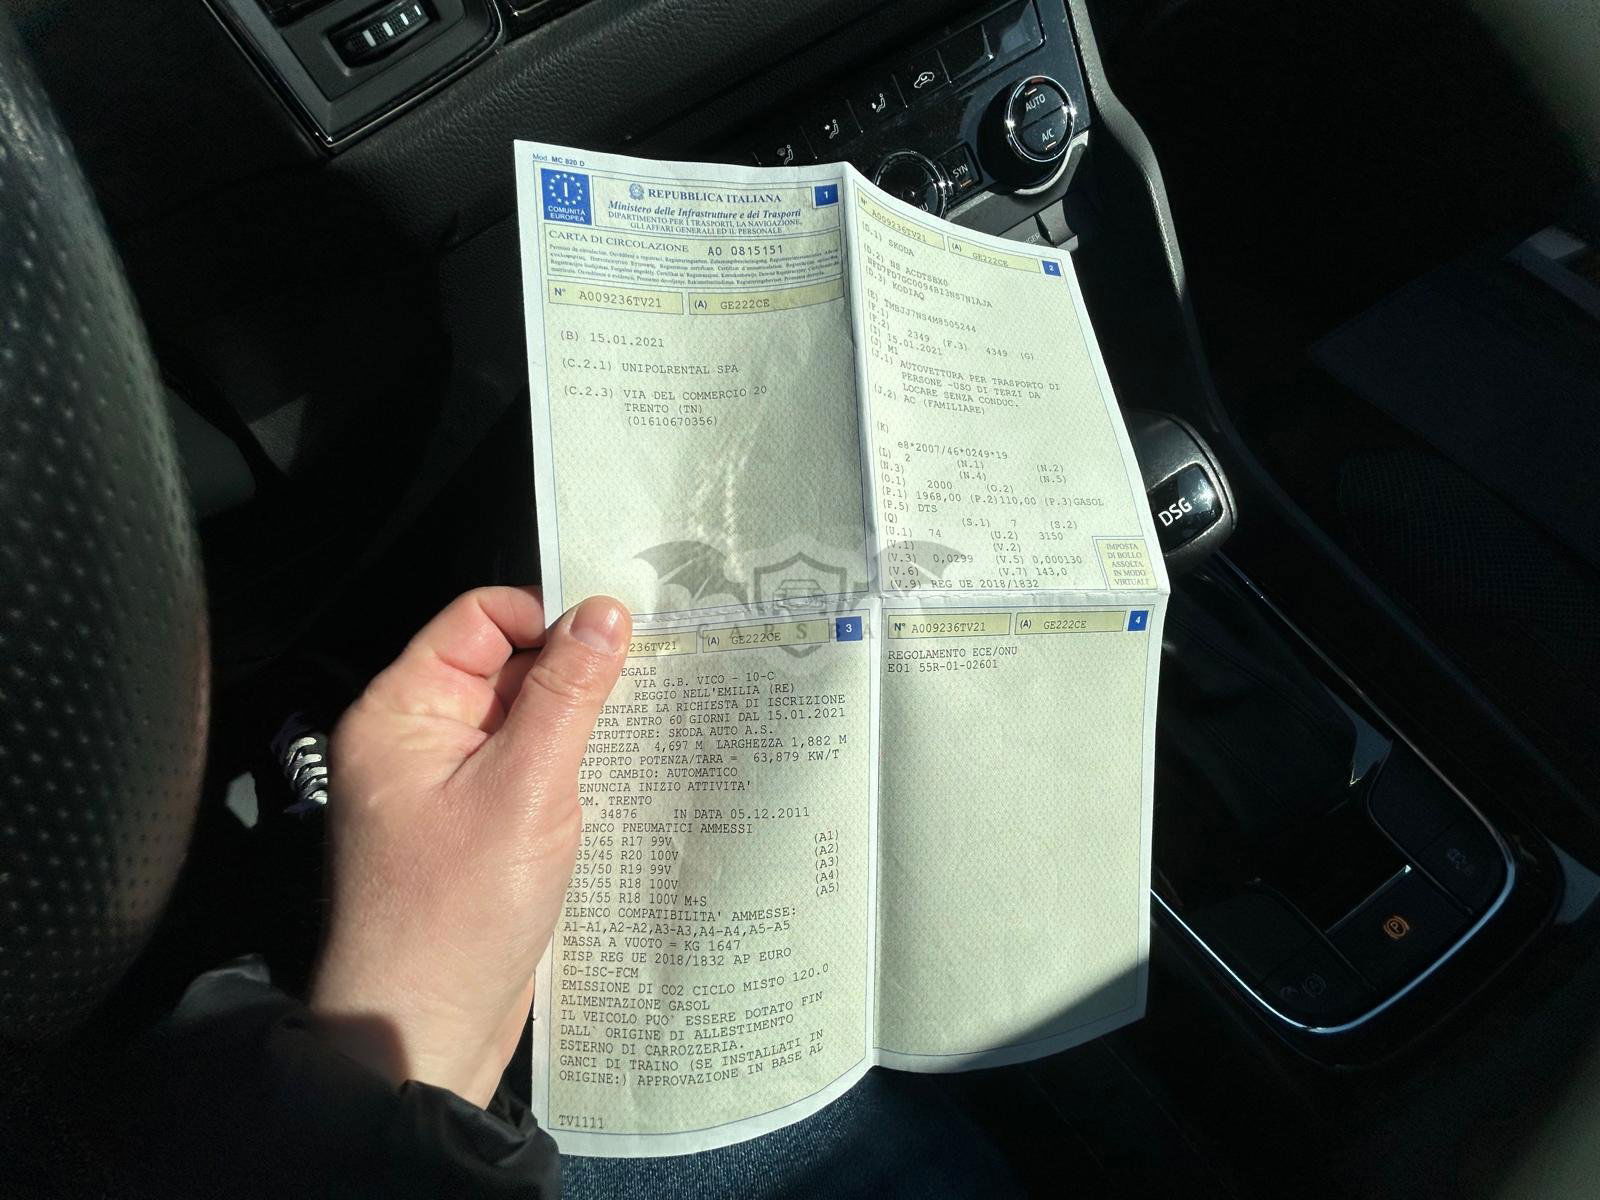 Mod. MC 820 D
I
COMUNITÀ
EUROPEA
REPUBBLICA ITALIANA
1
Ministero delle Infrastrutture e dei Trasporti
DIPARTIMENTO PER I TRASPORTI, LA NAVIGAZIONE,
GLI AFFARI GENERALI ED IL PERSONALE
CARTA DI CIRCOLAZIONE AO 0815151
N° A009236TV21 (A) GE222CE
(B) 15.01.2021
(C.2.1) UNIPOLRENTAL SPA
(C.2.3) VIA DEL COMMERCIO 20
TRENTO (TN)
(01610670356)
N° A009236TV21 (A) GE222CE 2
(D.1) SKODA
(D.2) NS ACDTSBX0
(D.3) KODIAQ
(E) TMBJJ7NS4M8505244
(F.1)
(F.2) 2349 (F.3) 4349 (G)
(I) 15.01.2021
(J) M1
(J.1) AUTOVETTURA PER TRASPORTO DI
PERSONE -USO DI TERZI DA
LOCARE SENZA CONDUC.
(J.2) AC (FAMILIARE)
(K)
e8*2007/46*0249*19
(L) 2 (N.1) (N.2)
(N.3) (N.4) (N.5)
(O.1) 2000 (O.2)
(P.1) 1968,00 (P.2)110,00 (P.3)GASOL
(P.5) DTS
(Q) (S.1) 7 (S.2)
(U.1) 74 (U.2) 3150
(V.1) (V.2)
(V.3) 0,0299 (V.5) 0,000130
(V.6) (V.7) 143,0
(V.9) REG UE 2018/1832
IMPOSTA
DI BOLLO
ASSOLTA
IN MODO
VIRTUALE
236TV21 (A) GE222CE 3
EGALE
VIA G.B. VICO - 10-C
REGGIO NELL'EMILIA (RE)
SENTARE LA RICHIESTA DI ISCRIZIONE
PRA ENTRO 60 GIORNI DAL 15.01.2021
STRUTTORE: SKODA AUTO A.S.
NGHEZZA 4,697 M LARGHEZZA 1,882 M
APPORTO POTENZA/TARA = 63,879 KW/T
IPO CAMBIO: AUTOMATICO
ENUNCIA INIZIO ATTIVITA'
OM. TRENTO
34876 IN DATA 05.12.2011
LENCO PNEUMATICI AMMESSI
5/65 R17 99V (A1)
35/45 R20 100V (A2)
35/50 R19 99V (A3)
235/55 R18 100V (A4)
235/55 R18 100V M+S (A5)
ELENCO COMPATIBILITA' AMMESSE:
A1-A1,A2-A2,A3-A3,A4-A4,A5-A5
MASSA A VUOTO = KG 1647
RISP REG UE 2018/1832 AP EURO
6D-ISC-FCM
EMISSIONE DI CO2 CICLO MISTO 120.0
ALIMENTAZIONE GASOL
IL VEICOLO PUO' ESSERE DOTATO FIN
DALL' ORIGINE DI ALLESTIMENTO
ESTERNO DI CARROZZERIA.
GANCI DI TRAINO (SE INSTALLATI IN
ORIGINE:) APPROVAZIONE IN BASE AL
TV1111
N° A009236TV21 (A) GE222CE 4
REGOLAMENTO ECE/ONU
E01 55R-01-02601
AUTO
A/C
SYN
DSG
(P)